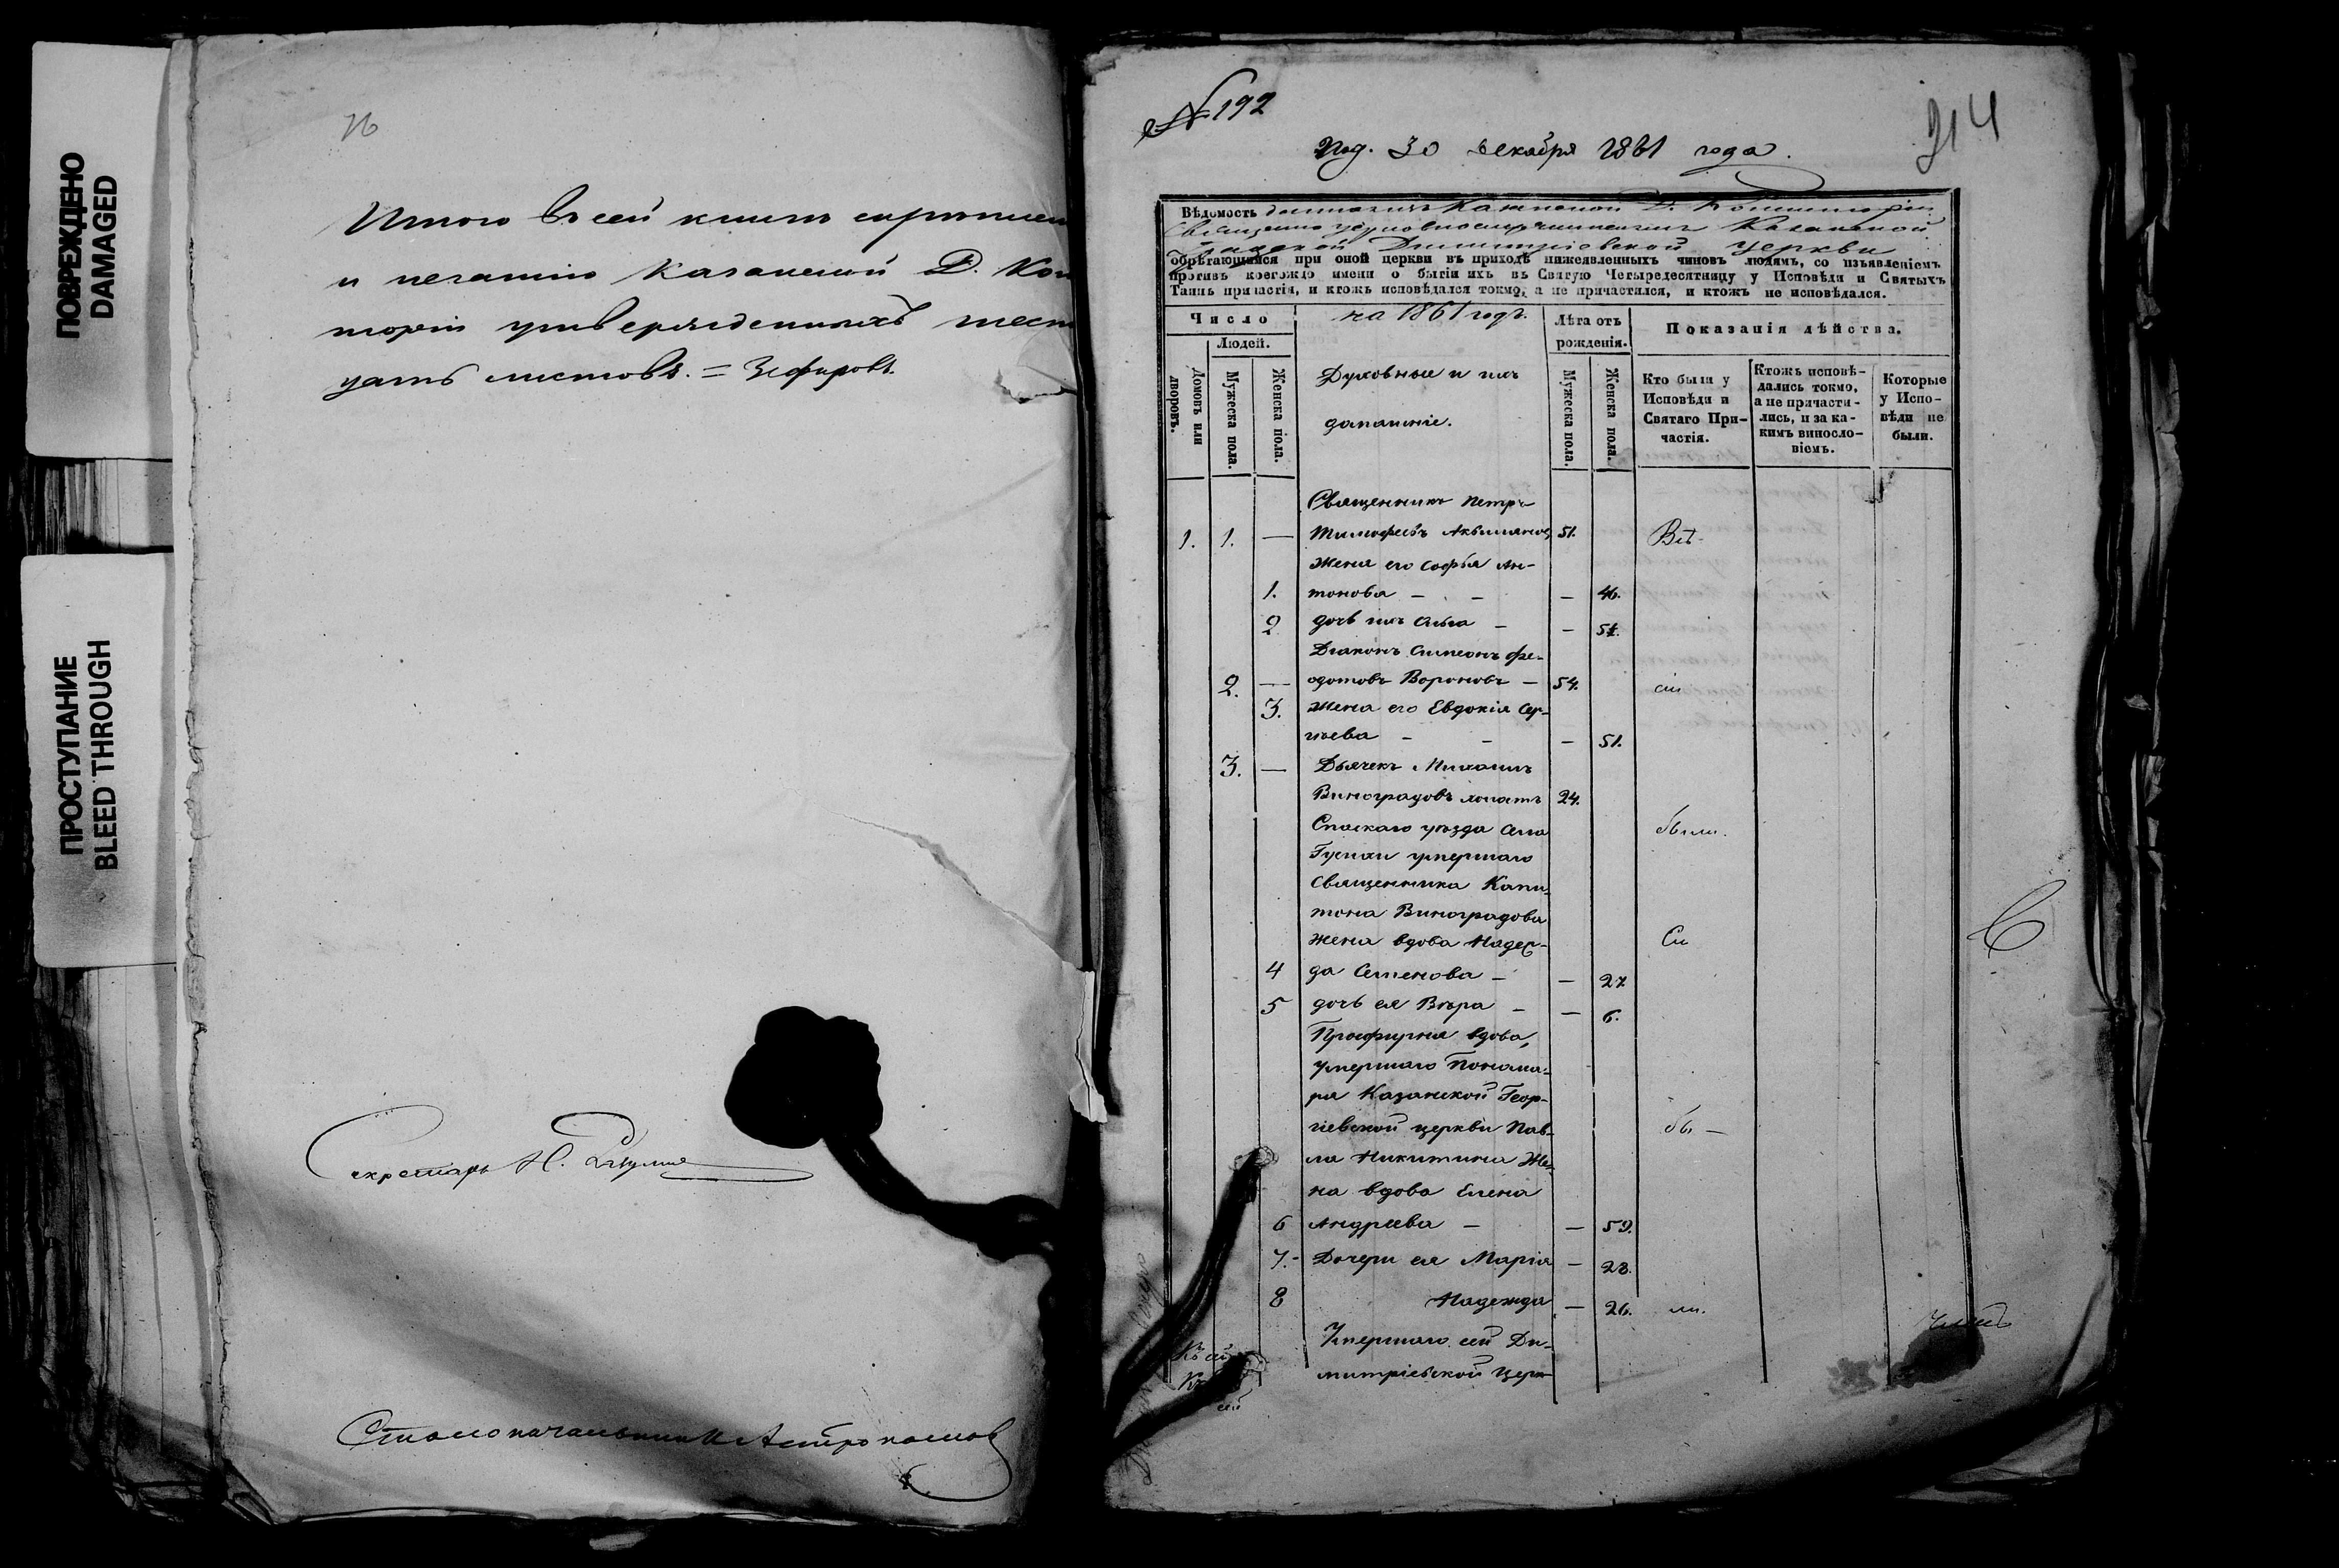 ПОВРЕЖДЕНО
DAMAGED
ПРОСТУПАНИЕ
BLEED THROUGH
76
Итого въ сей книгѣ скрѣпленн
и печатію Казанской Д. Кон
торіи утвержденныхъ шест
цать листовъ. = Зефировъ.
Секретарь Н.
Столоначальникъ
№ 192
Под. 30 декабря 1861 года.
314
Вѣдомость Казанской Д. Консисторіи
Священно церковнослужителями Казанской
Градской Димитріевской церкви
обрѣтающимся при оной церкви въ приходѣ нижеявленныхъ чиновъ людямъ, со изъявленіемъ
противъ коегождо имени о бытіи ихъ въ Святую Четыредесятницу у Исповѣди и Святыхъ
Таинъ причастія, и ктожъ исповѣдался токмо, а не причастился, и ктожъ не исповѣдался.
Число
на 1861 годъ.
Лѣта отъ
рожденія.
Показанія дѣйства.
Людей.
Домовъ или
дворовъ.
Мужеска пола.
Женска пола.
Духовные и ихъ
домашніе.
Мужеска пола.
Женска пола.
Кто были у
Исповѣди и
Святаго При-
частія.
Ктожъ исповѣ-
дались токмо,
а не причасти-
лись, и за ка-
кимъ винослo-
віемъ.
Которые
у Испо-
вѣди не
были.
Священникъ Петръ
1. 1. — Тимофеевъ 51. Всѣ
Жена его Софья Ан-
1. тонова — — — 46.
2 дочь ихъ Ольга — —
Діаконъ Симеонъ Фе-
2. — одотовъ Вороновъ — 54. сіи
3. Жена его Евдокія Сер-
гѣева — — — 51.
3. — Дьячекъ Михаилъ
Виноградовъ холостъ 24.
Спаскаго уѣзда села были.
умершаго
Священника Капи-
тона Виноградова
жена вдова Надеж- Сіи
4 да Семенова — — 27.
5 дочь ея Вѣра — — 6.
Просфирня вдова,
умершаго Понома-
ря Казанской Геор-
гіевской церкви Пав- бы —
ла Никитина Же-
на вдова Елена
6 Андреева — — 59.
7. - Дочери ея Марія — 28.
8 Надежда — 26. ли.
Умершаго сей Ди-
митріевской Церк-
Къ сей
сей